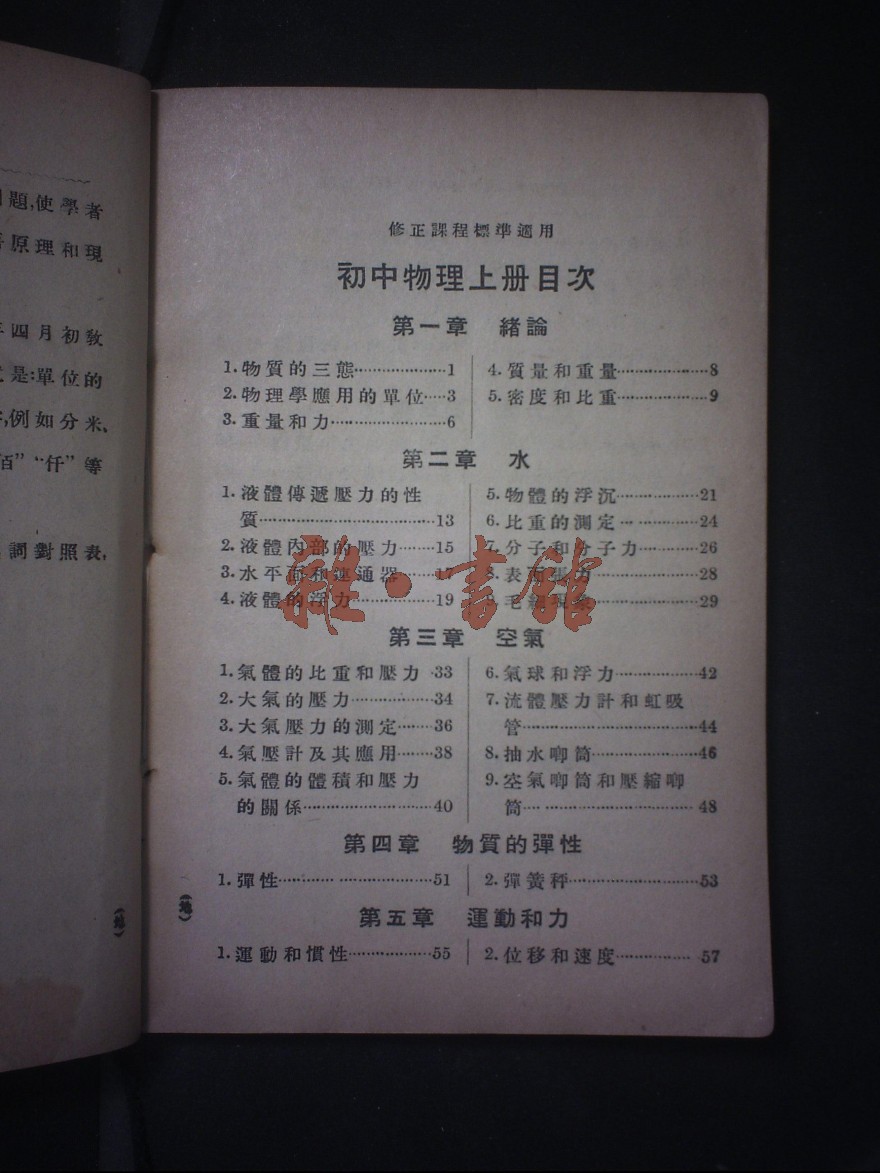 題,使學者
原理和現
四月初教
是:單位的
例如分米、
佰”“仟”等
詞對照表,
修正課程標準適用
初中物理上册目次
第一章 緒論
1.物質的三態…………………1
2.物理學應用的單位……3
3.重量和力……………………6
4.質量和重量…………………8
5.密度和比重…………………9
第二章 水
1.液體傳遞壓力的性
質…………………………………13
2.液體內部的壓力………15
3.水平面和連通器………17
4.液體的浮力………………19
5.物體的浮沉………………21
6.比重的測定………………24
7.分子和分子力……………26
8.表面張力…………………28
9.毛細現象…………………29
第三章 空氣
1.氣體的比重和壓力·33
2.大氣的壓力………………34
3.大氣壓力的測定………36
4.氣壓計及其應用………38
5.氣體的體積和壓力
的關係…………………………40
6.氣球和浮力………………42
7.流體壓力計和虹吸
管…………………………………44
8.抽水唧筒……………………46
9.空氣唧筒和壓縮唧
筒…………………………………48
第四章 物質的彈性
1.彈性……………………………51
2.彈簧秤………………………53
第五章 運動和力
1.運動和慣性………………55
2.位移和速度………………57
雜·書館